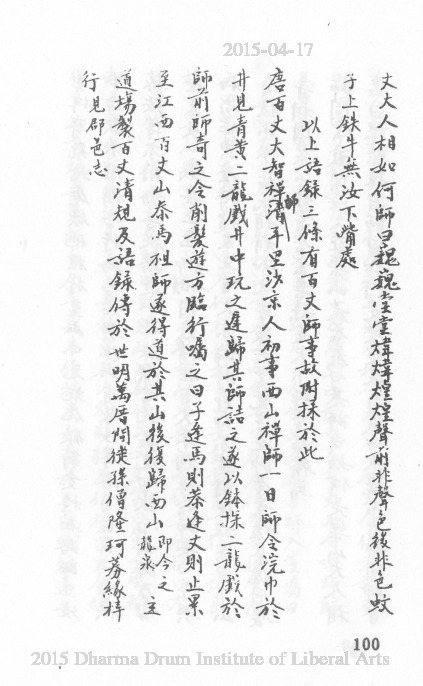 2015-04-17
丈大人相如何師曰巍巍堂堂煒煒煌煌聲前非聲色後非色蚊
子上鉄牛無汝下嘴處
以上語録三條有百丈師事故附採於此
唐百丈大智禪師清平里沙京人初事西山禪師一日師令浣巾於
井見青黃二龍戲井中玩之遲歸其師詰之遂以鉢探二龍戲於
師前師奇之令削髮遊方臨行嘱之曰子逢馬則參逢丈則止果
至江西百丈山泰馬祖師遂得道於其山後復歸西山即今之龍泉主
道場製百丈清規及語録傳於世明萬厝間徒孫僧隆珂募緣梓
行見郡邑志
100
2015 Dharma Drum Institute of Liberal Arts